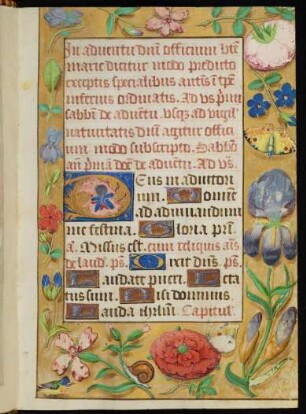 In adventu dn̄i officium bt̄e
marie dicitur modo predicto
exceptis specialibus antiis et p̄
inferius ordinatis. Ad vs p̄riā
sabb̄i de advētu. vsq̄ ad vigil̄
natiuitatis dn̄i agitur offici
um modo subscripto. Sabb̄o
an̄ p̄mā dōc̄ de advētu. Ad v̄s.
Eus in adiutori
um. Domine
ad adiuuandum
me festina. Gloria pr̄i.
a. Missus est. cum reliquis an̄s
de laud̄. p̄s. Dixit dn̄s. p̄s.
Laudate pueri. Leta
tus sum. Nisi dominus.
Lauda ihrl̄m. Capitul̄.